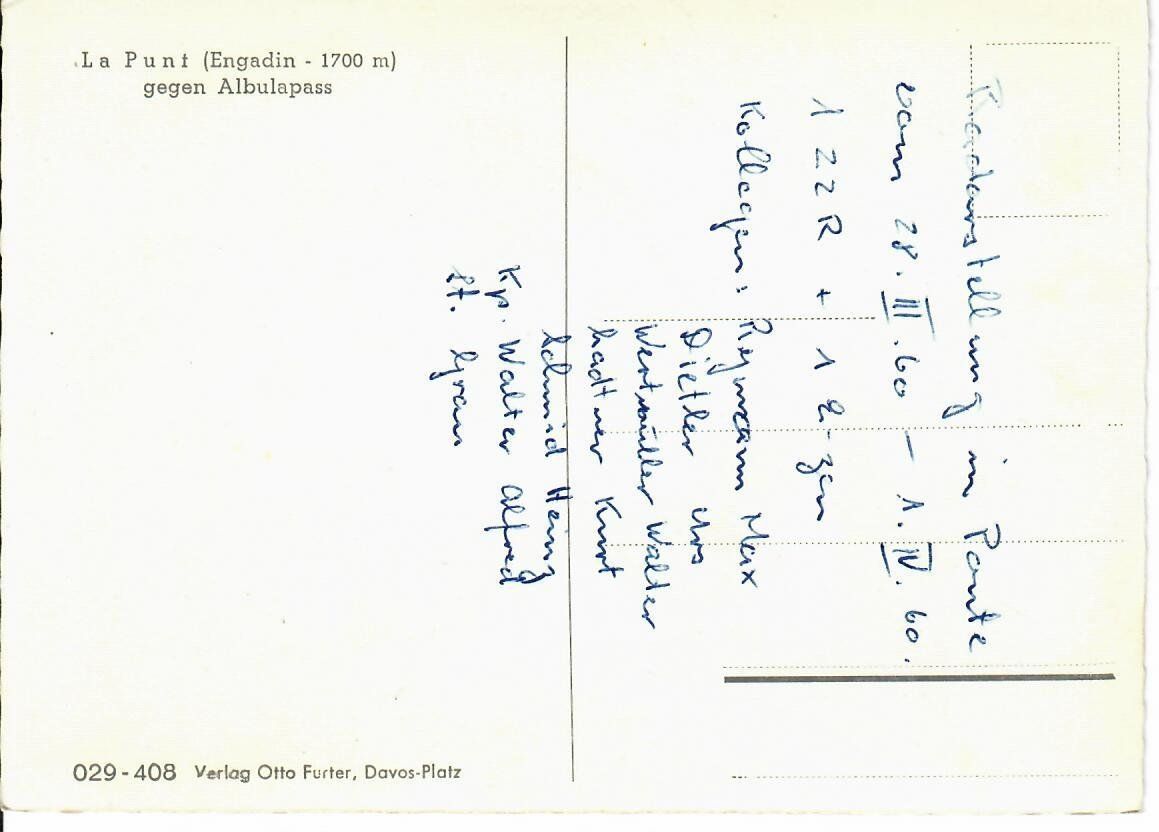 La Punt (Engadin - 1700 m)
gegen Albulapass
Radarstellung in Ponte
vom 28. III. 60 – 1. IV. 60.
1 ZZR + 1
Kollegen: Rymann Max
Dietler Urs
Wertmüller Walter
Kurt
Schmid Heinz
Kp. Walter Alfred
Lt.
029-408 Verlag Otto Furter, Davos-Platz